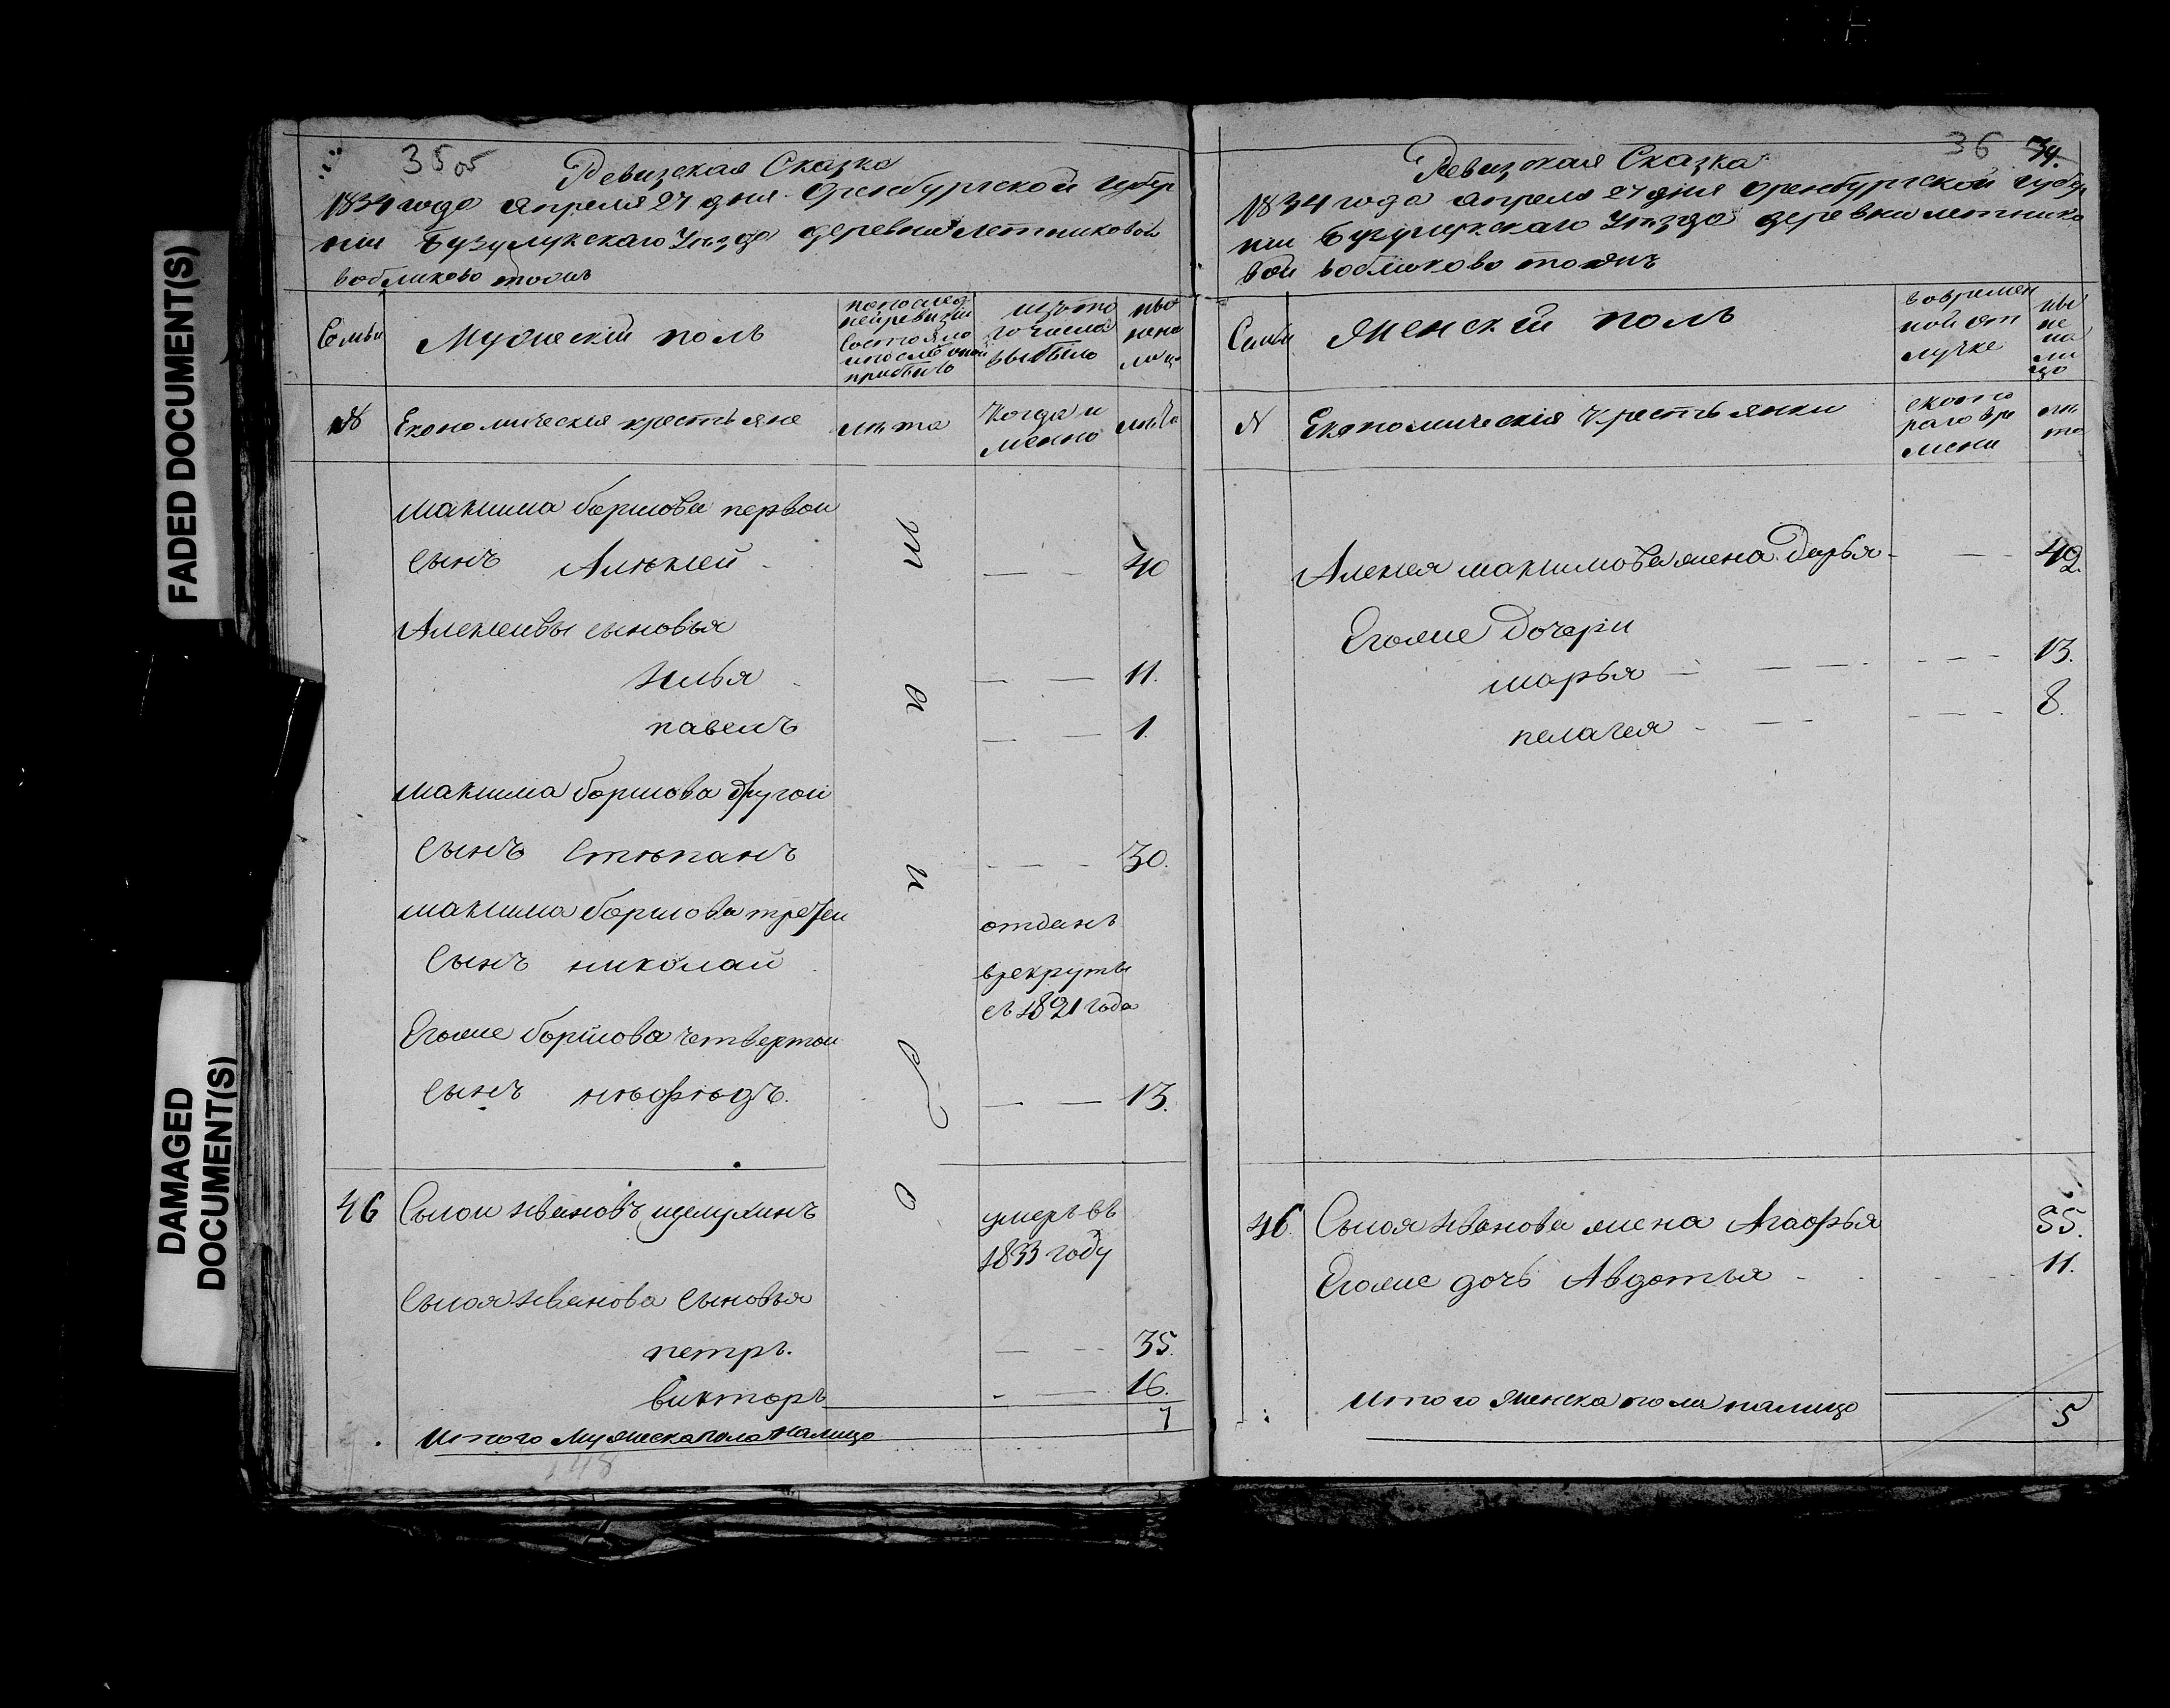 FADED DOCUMENT(S)
DAMAGED
DOCUMENT(S)
35
Ревизская Сказка
1834 года апреля 27 дня Оренбургской Губер
нии Бузулукскаго Уезда деревни Летниковой
Семьи
Мужескій полъ
попослед
ней ревизіи
состояло
и после оной
прибыло
изъ то
го числа
выбыло
ныо
нена
лицо
№
Економическія крестьяне
лета
Когда и
менно
лета
Максима борисова первои
сынъ Алексей
40
Алексеивы сыновья
Илья
11.
павелъ
1.
Максима борисова другои
сынъ Степанъ
30.
Максима борисова третеи
отданъ
сынъ николаи
врекруты
съ 1821 года
Егоже борисова четвертои
сынъ нефедъ.
13.
46
Сысои Ивановъ щелухинъ
умеръ въ
1833 году
Сысоя Иванова сыновья
петръ.
35.
викторъ
16.
Итого Мужеска пола налицо
7
36
34.
Ревизская Сказка
1834 года апреля 27 дня Оренбургской Губер
нии Бузулукскаго Уезда деревни летнико
вои
Семьи
Женскій полъ
вовремен
ной от
лучке
ны
не
на
ли
цо
N
Економическія Крестьянки
ското
раго вре
мени
ле
та
Алексея максимова жена Дарья
42.
Егоже Дочери
марья
13.
пелагея
8.
46.
Сысоя Иванова жена Агафья
55.
Егоже дочь Авдотья
11.
Итого Женска пола налицо
5